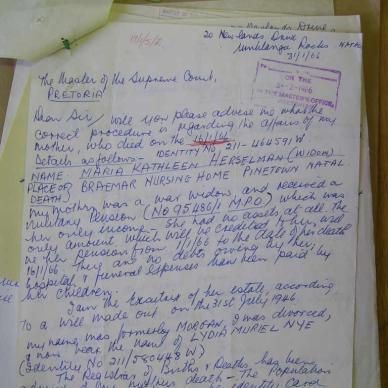 20 Newlands Drive
Umhlanga Rocks NATAL
31/1/66
The Master of the Supreme Court,
PRETORIA
ON THE
MASTER'S OFFICE
Dear Sir, Will you please advise me what the
correct procedure is regarding the affairs of my
mother, who died on the 16/1/66
Details as follows:- IDENTITY No 211-464591W
NAME MARIA KATHLEEN HERSELMAN (WIDOW)
PLACE OF DEATH) BRAEMAR NURSING HOME PINETOWN NATAL
My mother was a war widow, and received a
military Pension (No 95486/1 M.P.O) which was
her only income - She had no assets at all. The
only amount which will be credited to her will
be her pension from 1/1/66 to the date of her death
16/1/66 They are no debts owing by her;
hospital & funeral expenses have been paid by
her children.
I am the Executrix of her estate, according
to a will made out on the 31st July 1946.
My name was formerly MORGAN, I was divorced,
& now bear the name of LYDIA MURIEL NYE
(Identity No 211/580448 W)
The Registrar of Births & Deaths, has been
my mothers death - The Population
identity Card